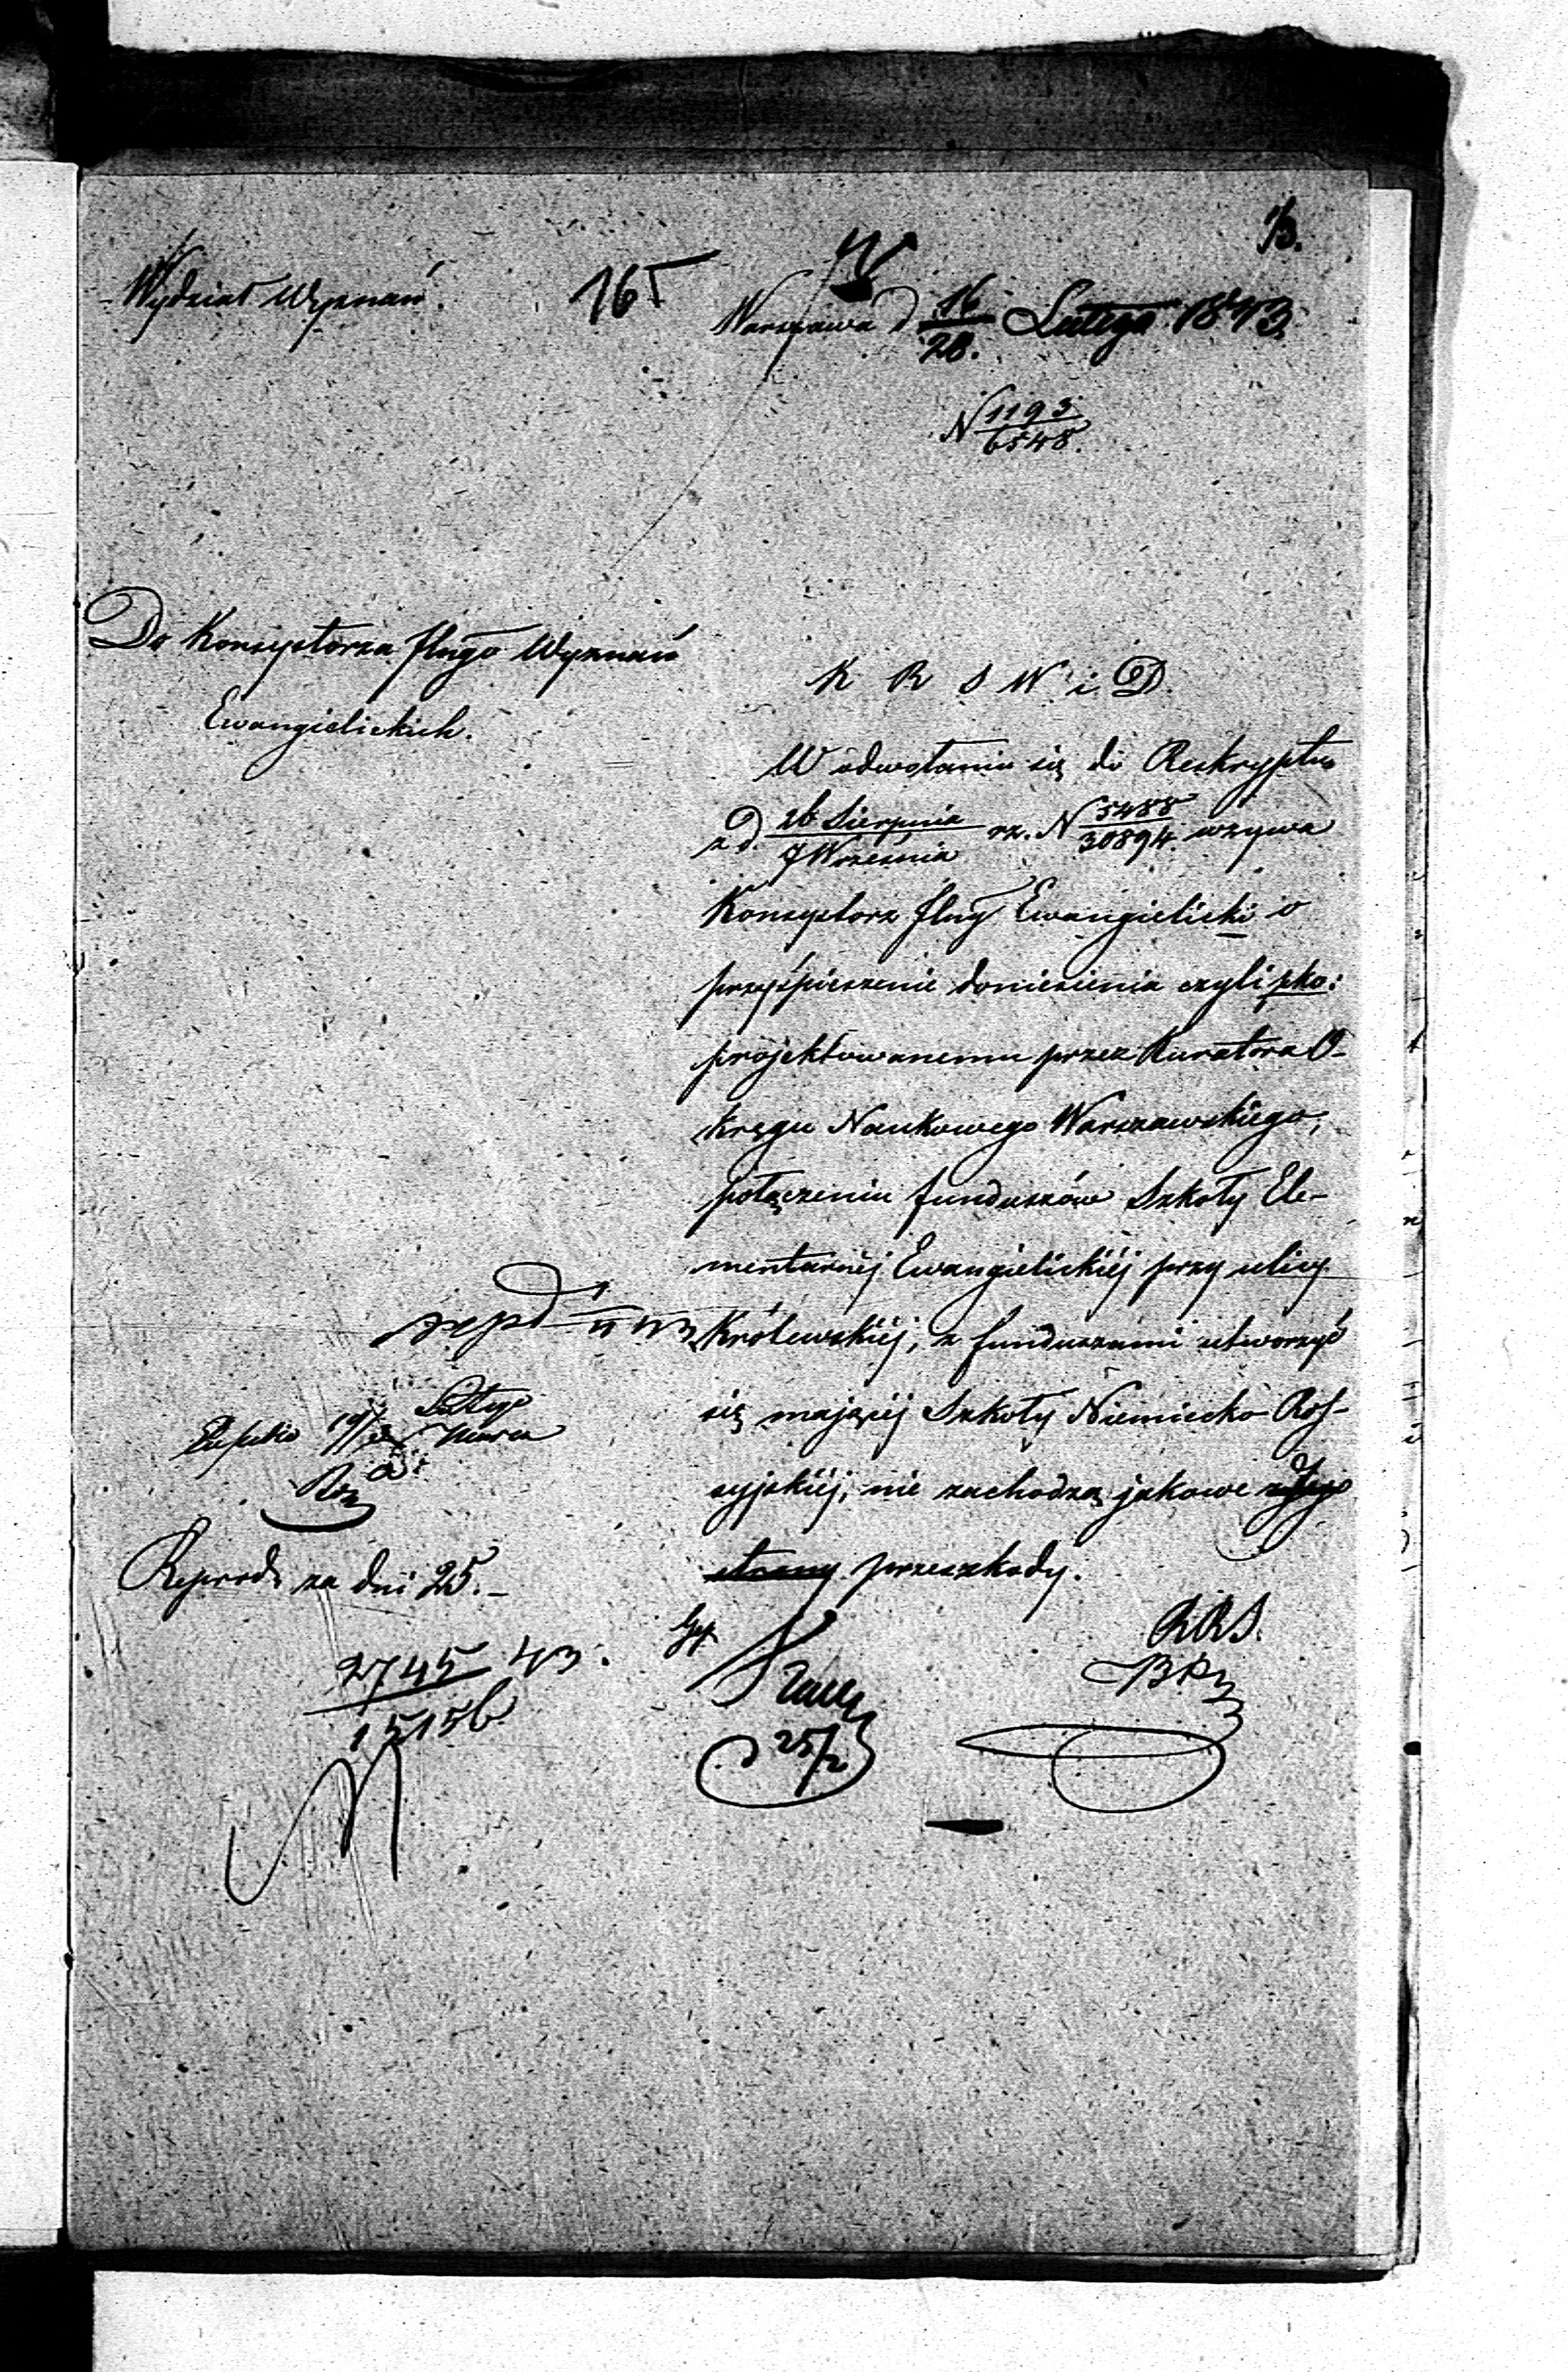 13.
Wydział Wyznań.
165
Warszawa d 16/28. Lutego 1843
N 1193/6548.
Do Konsystorza Jlngo Wyznań
Ewangielickich.
K R S W i D.
W odwołaniu się do Reskryptu
z d. 26 Sierpnia/7 Września rz. N 5488/30894 wzywa
Konsystorz Jlny Ewangielicki o
przyśpieszenie doniesienia czyli pko:
projektowanemu przez Kuratora O-
kręgu Naukowego Warszawskiego,
połączeniu funduszów Szkoły Ele-
mentarnéj Ewangielickiéj przy ulicy
Królewskiéj, z funduszami utworzyć
się mającéj Szkoły Niemiecko Ros-
syjskiéj, nie zachodzą jakowe z Jego
strony przeszkody.
Lutego
Marca
Reprod. za dni 25.-
2745/15156 43.
RRS.
25/2